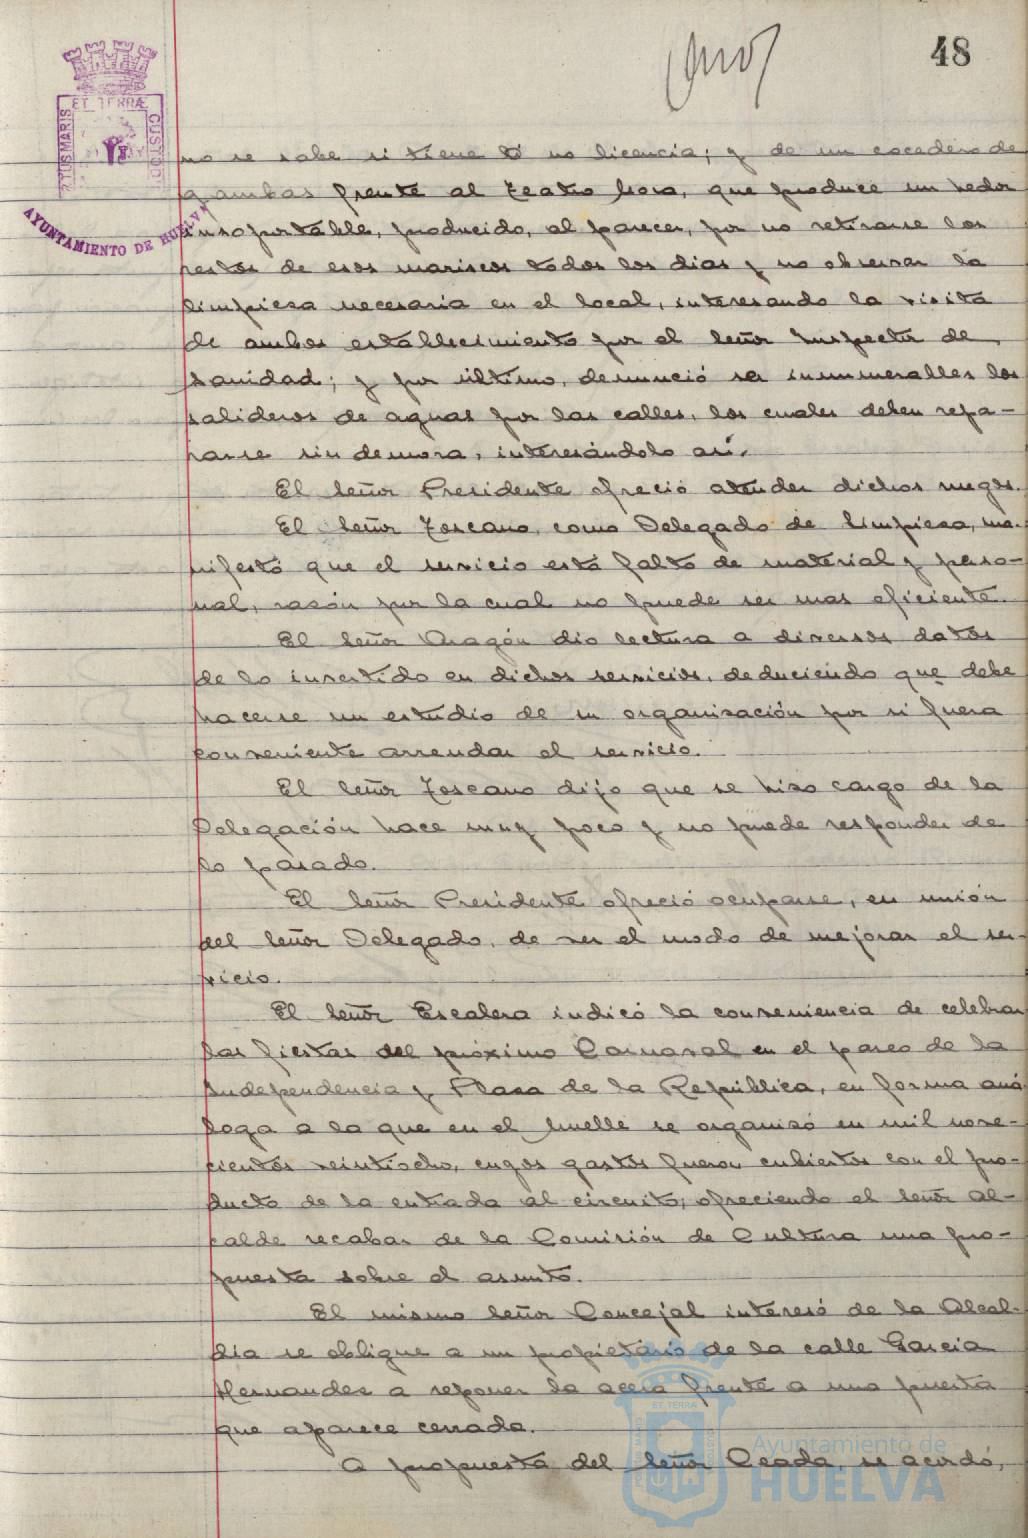 48
PORTUS MARIS ET TERRÆ CUSTODIA
AYUNTAMIENTO DE HUELVA
no se sabe si tiene o no licencia; y de un cocedero de
gambas frente al Teatro Mora, que produce un hedor
insoportable, producido, al parecer, por no retirarse los
restos de esos mariscos todos los dias y no observar la
limpieza necesaria en el local, interesando la visita
de ambos establecimiento por el señor Inspector de
Sanidad; y por último, denunció ser innumerables los
salideros de aguas por las calles, los cuales deben repa-
rarse sin demora, interesándolo así.
El señor Presidente ofreció atender dichos ruegos.
El señor Toscano, como Delegado de Limpieza, ma-
nifestó que el servicio está falto de material y perso-
nal, razón por la cual no puede ser mas eficiente.
El señor Aragón dio lectura a diversos datos
de lo invertido en dichos servicios, deduciendo que debe
hacerse un estudio de su organización por si fuera
conveniente arrendar el servicio.
El señor Toscano dijo que se hizo cargo de la
Delegación hace muy poco y no puede responder de
lo pasado.
El señor Presidente ofreció ocuparse, en unión
del señor Delegado, de ver el modo de mejorar el ser-
vicio.
El señor Escalera indicó la conveniencia de celebrar
las fiestas del próximo Carnaval en el paseo de la
Independencia y Plaza de la República, en forma aná
loga a la que en el Muelle se organizó en mil nove-
cientos veintiocho, cuyos gastos fueron cubiertos con el pro-
ducto de la entrada al circuito, ofreciendo el señor Al-
calde recabar de la Comisión de Cultura una pro-
puesta sobre el asunto.
El mismo señor Concejal interesó de la Alcal-
día se obligue a un propietario de la calle Garcia
Hernandez a reponer la acera frente a una puerta
que aparece cerrada.
A propuesta del señor Ceada, se acordó,
Ayuntamiento de
HUELVA